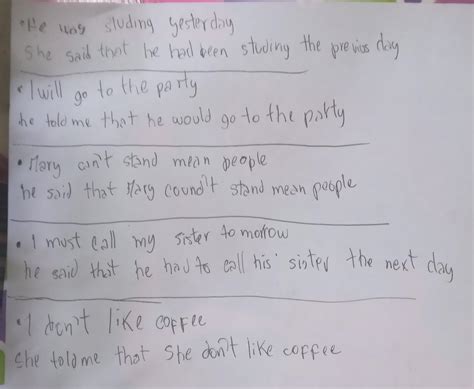 • He was studing yesterday
She said that he had been studing the previus day
• I will go to the party
he told me that he would go to the party
• Mary can't stand mean people
he said that Mary cound't stand mean people
• I must call my sister tomorrow
he said that he had to call his sister the next day
• I don't like coffee
She told me that She don't like coffee